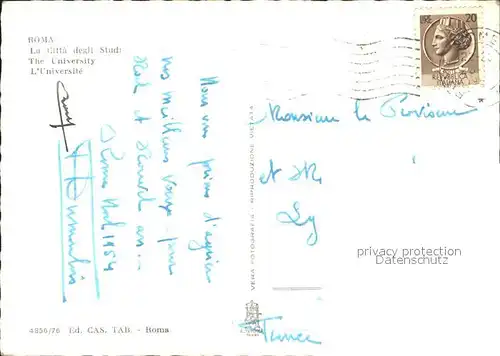 ROMA
La Città degli Studi
The University
L'Université
Nous vous prions d'agréer
nos meilleurs vœux pour
Noël et Nouvel an
Rome Noël 1954
4836/76 Ed. CAS. TAB. - Roma
VERA FOTOGRAFIA - RIPRODUZIONE VIETATA
20
Monsieur le Proviseur
et
Ly
France
privacy protection
Datenschutz